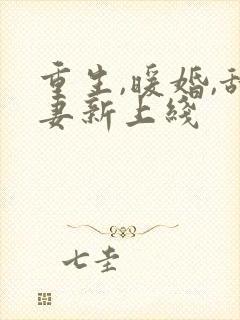 重生,暖婚,甜
妻新上线
七圭